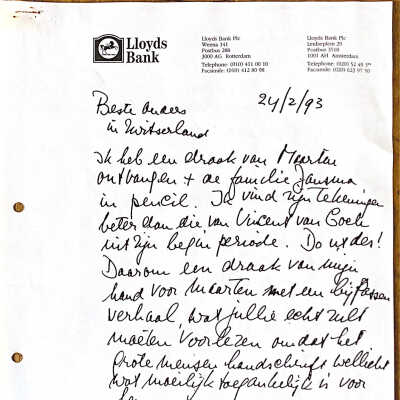 Lloyds
Bank
Lloyds Bank Plc
Weena 341
Postbus 266
3000 AG Rotterdam
Telephone: (010) 411 00 10
Facsimile: (010) 412 80 08
Lloyds Bank Plc
Leidseplein 29
Postbus 3518
1001 AH Amsterdam
Telephone: (020) 52 45 3
Facsimile: (020) 623 97 50
24/2/93
Beste ouders
in Zwitserland
Ik heb een draak van Maarten
ontvangen + de familie Jansma
in pencil. Ik vind zijn tekeningen
beter dan die van Vincent van Gogh
uit zijn begin periode. Do ut des!
Daarom een draak van mijn
hand voor Maarten met een bijpassen
verhaal, wat jullie echt zult
moeten voorlezen omdat het
grote mensen handschrift wellicht
wat moeilijk toegankelijk is voor